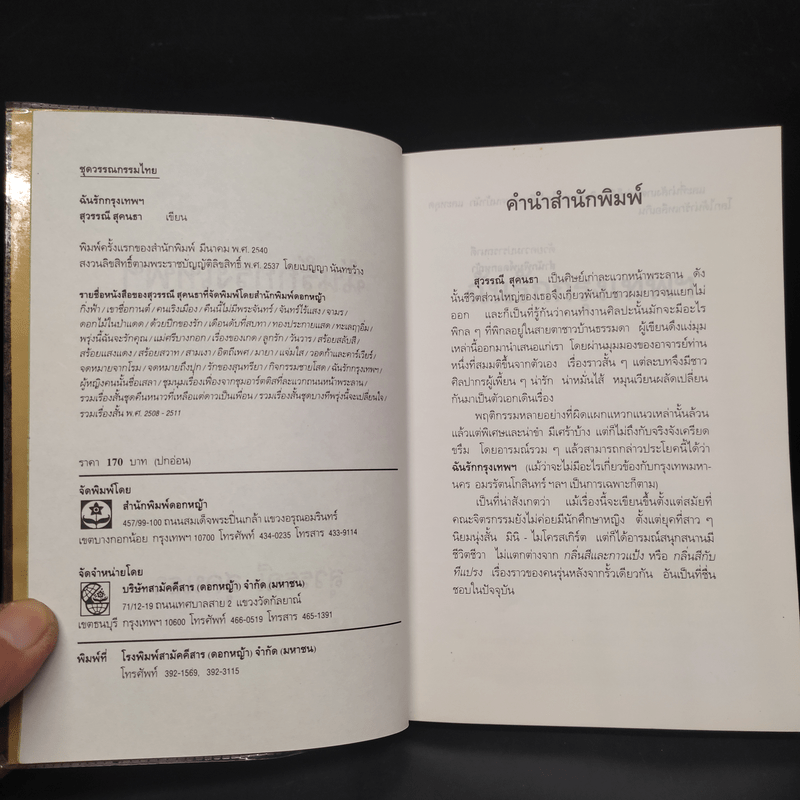 ชุดวรรณกรรมไทย
ฉันรักกรุงเทพฯ
สุวรรณี สุคนธา เขียน
พิมพ์ครั้งแรกของสำนักพิมพ์ มีนาคม พ.ศ. 2540
สงวนลิขสิทธิ์ตามพระราชบัญญัติลิขสิทธิ์ พ.ศ. 2537 โดยเบญญา นันทขว้าง
รายชื่อหนังสือของสุวรรณี สุคนธาที่จัดพิมพ์โดยสำนักพิมพ์ดอกหญ้า
กิ่งฟ้า / เขาชื่อกานต์ / คนเริงเมือง / คืนนี้ไม่มีพระจันทร์ / จันทร์ไร้แสง / จามร /
ดอกไม้ในป่าแดด / ด้วยปีกของรัก / เดือนดับที่สบทา / ทองประกายแสด / ทะเลฤาอิ่ม /
พรุ่งนี้ฉันจะรักคุณ / แม่ศรีบางกอก / เรื่องของเกด / ลูกรัก / วันวาร / สร้อยสลับสี /
สร้อยแสงแดง / สร้อยสวาท / สามเงา / อิตถีเพศ / มายา / แจ่มใส / วอดก้าและคาร์เวียร์ /
จดหมายจากโรม / จดหมายถึงปุก / รักของสุนทรียา / กิจกรรมชายโสด / ฉันรักกรุงเทพฯ /
ผู้หญิงคนนั้นชื่อเสลา / ชุมนุมเรื่องเฟื่องจากชุมอาร์ตติสที่ละแวกถนนหน้าพระลาน /
รวมเรื่องสั้นชุดคืนหนาวที่เหลือแต่ดาวเป็นเพื่อน / รวมเรื่องสั้นชุดบางทีพรุ่งนี้จะเปลี่ยนใจ /
รวมเรื่องสั้น พ.ศ. 2508 - 2511
ราคา 170 บาท (ปกอ่อน)
จัดพิมพ์โดย
สำนักพิมพ์ดอกหญ้า
457/99-100 ถนนสมเด็จพระปิ่นเกล้า แขวงอรุณอมรินทร์
เขตบางกอกน้อย กรุงเทพฯ 10700 โทรศัพท์ 434-0235 โทรสาร 433-9114
จัดจำหน่ายโดย
บริษัทสามัคคีสาร (ดอกหญ้า) จำกัด (มหาชน)
71/12-19 ถนนเทศบาลสาย 2 แขวงวัดกัลยาณ์
เขตธนบุรี กรุงเทพฯ 10600 โทรศัพท์ 466-0519 โทรสาร 465-1391
พิมพ์ที่ โรงพิมพ์สามัคคีสาร (ดอกหญ้า) จำกัด (มหาชน)
โทรศัพท์ 392-1569, 392-3115
คำนำสำนักพิมพ์
สุวรรณี สุคนธา เป็นศิษย์เก่าละแวกหน้าพระลาน ดัง
นั้นชีวิตส่วนใหญ่ของเธอจึงเกี่ยวพันกับชาวผมยาวจนแยกไม่
ออก และก็เป็นที่รู้กันว่าคนทำงานศิลปะนั้นมักจะมีอะไร
พิกล ๆ ที่พิกลอยู่ในสายตาชาวบ้านธรรมดา ผู้เขียนดึงแง่มุม
เหล่านี้ออกมานำเสนอแก่เรา โดยผ่านมุมมองของอาจารย์ท่าน
หนึ่งที่สมมติขึ้นจากตัวเอง เรื่องราวสั้น ๆ แต่ละบทจึงมีชาว
ศิลปากรผู้เพี้ยน ๆ น่ารัก น่าหมั่นไส้ หมุนเวียนผลัดเปลี่ยน
กันมาเป็นตัวเอกเดินเรื่อง
พฤติกรรมหลายอย่างที่ผิดแผกแหวกแนวเหล่านั้นล้วน
แล้วแต่พิเศษและน่าขำ มีเศร้าบ้าง แต่ก็ไม่ถึงกับจริงจังเครียด
ขรึม โดยอารมณ์รวม ๆ แล้วสามารถกล่าวประโยคนี้ได้ว่า
ฉันรักกรุงเทพฯ (แม้ว่าจะไม่มีอะไรเกี่ยวข้องกับกรุงเทพมหา-
นคร อมรรัตนโกสินทร์ ฯลฯ เป็นการเฉพาะก็ตาม)
เป็นที่น่าสังเกตว่า แม้เรื่องนี้จะเขียนขึ้นตั้งแต่สมัยที่
คณะจิตรกรรมยังไม่ค่อยมีนักศึกษาหญิง ตั้งแต่ยุคที่สาว ๆ
นิยมนุ่งสั้น มินิ - ไมโครสเกิร์ต แต่ก็ได้อารมณ์สนุกสนานมี
ชีวิตชีวา ไม่แตกต่างจาก กลิ่นสีและกาวแป้ง หรือ กลิ่นสีกับ
ทีแปรง เรื่องราวของคนรุ่นหลังจากรั้วเดียวกัน อันเป็นที่ชื่น
ชอบในปัจจุบัน